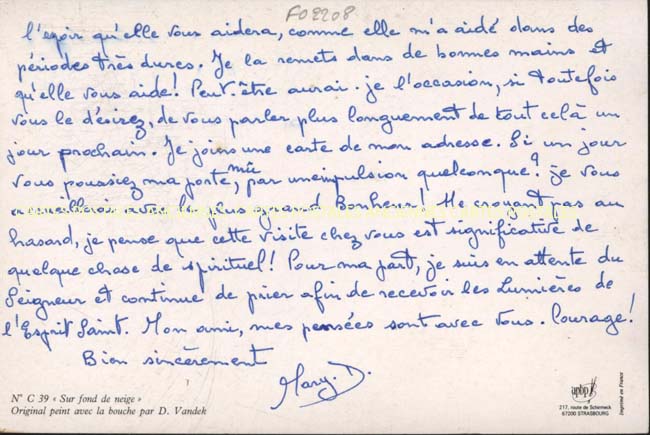 F02208
l'espoir qu'elle vous aidera, comme elle m'a aidé dans des
périodes très dures. Je la remets dans de bonnes mains et
qu'elle vous aide! Peut-être aurai-je l'occasion, si toutefois
vous le désirez, de vous parler plus longuement de tout celà un
jour prochain. Je joins une carte de mon adresse. Si un jour
vous poussiez ma porte, mû par une impulsion quelconque? je vous
accueillerais avec le plus grand Bonheur! Ne croyant pas au
hasard, je pense que cette visite chez vous est significative de
quelque chose de spirituel! Pour ma part, je suis en attente du
Seigneur et continue de prier afin de recevoir les Lumières de
l'Esprit Saint. Mon ami, mes pensées sont avec vous. Courage!
Bien sincèrement
Mary. D.
N° C 39 « Sur fond de neige »
Original peint avec la bouche par D. Vandek
apbp
217, route de Schirmeck
67200 STRASBOURG
Imprimé en France